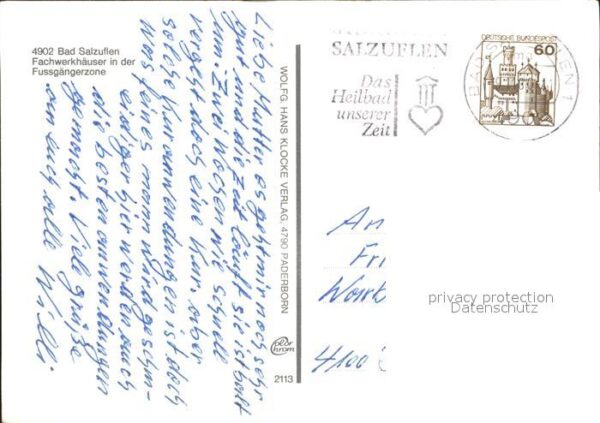 4902 Bad Salzuflen
Fachwerkhäuser in der
Fussgängerzone
Liebe Mutter es geht mir noch sehr
gut und die Zeit läuft sie ist halt
um. Zwei Wochen wie schnell
vergeht doch eine Kur. aber
solche Kuranwendungen ist doch
was feines man wird
hier werden auch
die besten anwendungen
gemacht. Viele grüße
von euch alle Willi
WOLFG. HANS KLOCKE VERLAG, 4790 PADERBORN
color
chrom
2113
SALZUFLEN
Das
Heilbad
unserer
Zeit
DEUTSCHE BUNDESPOST
60
BAD SALZUFLEN 1
An
Fr
4100
privacy protection
Datenschutz